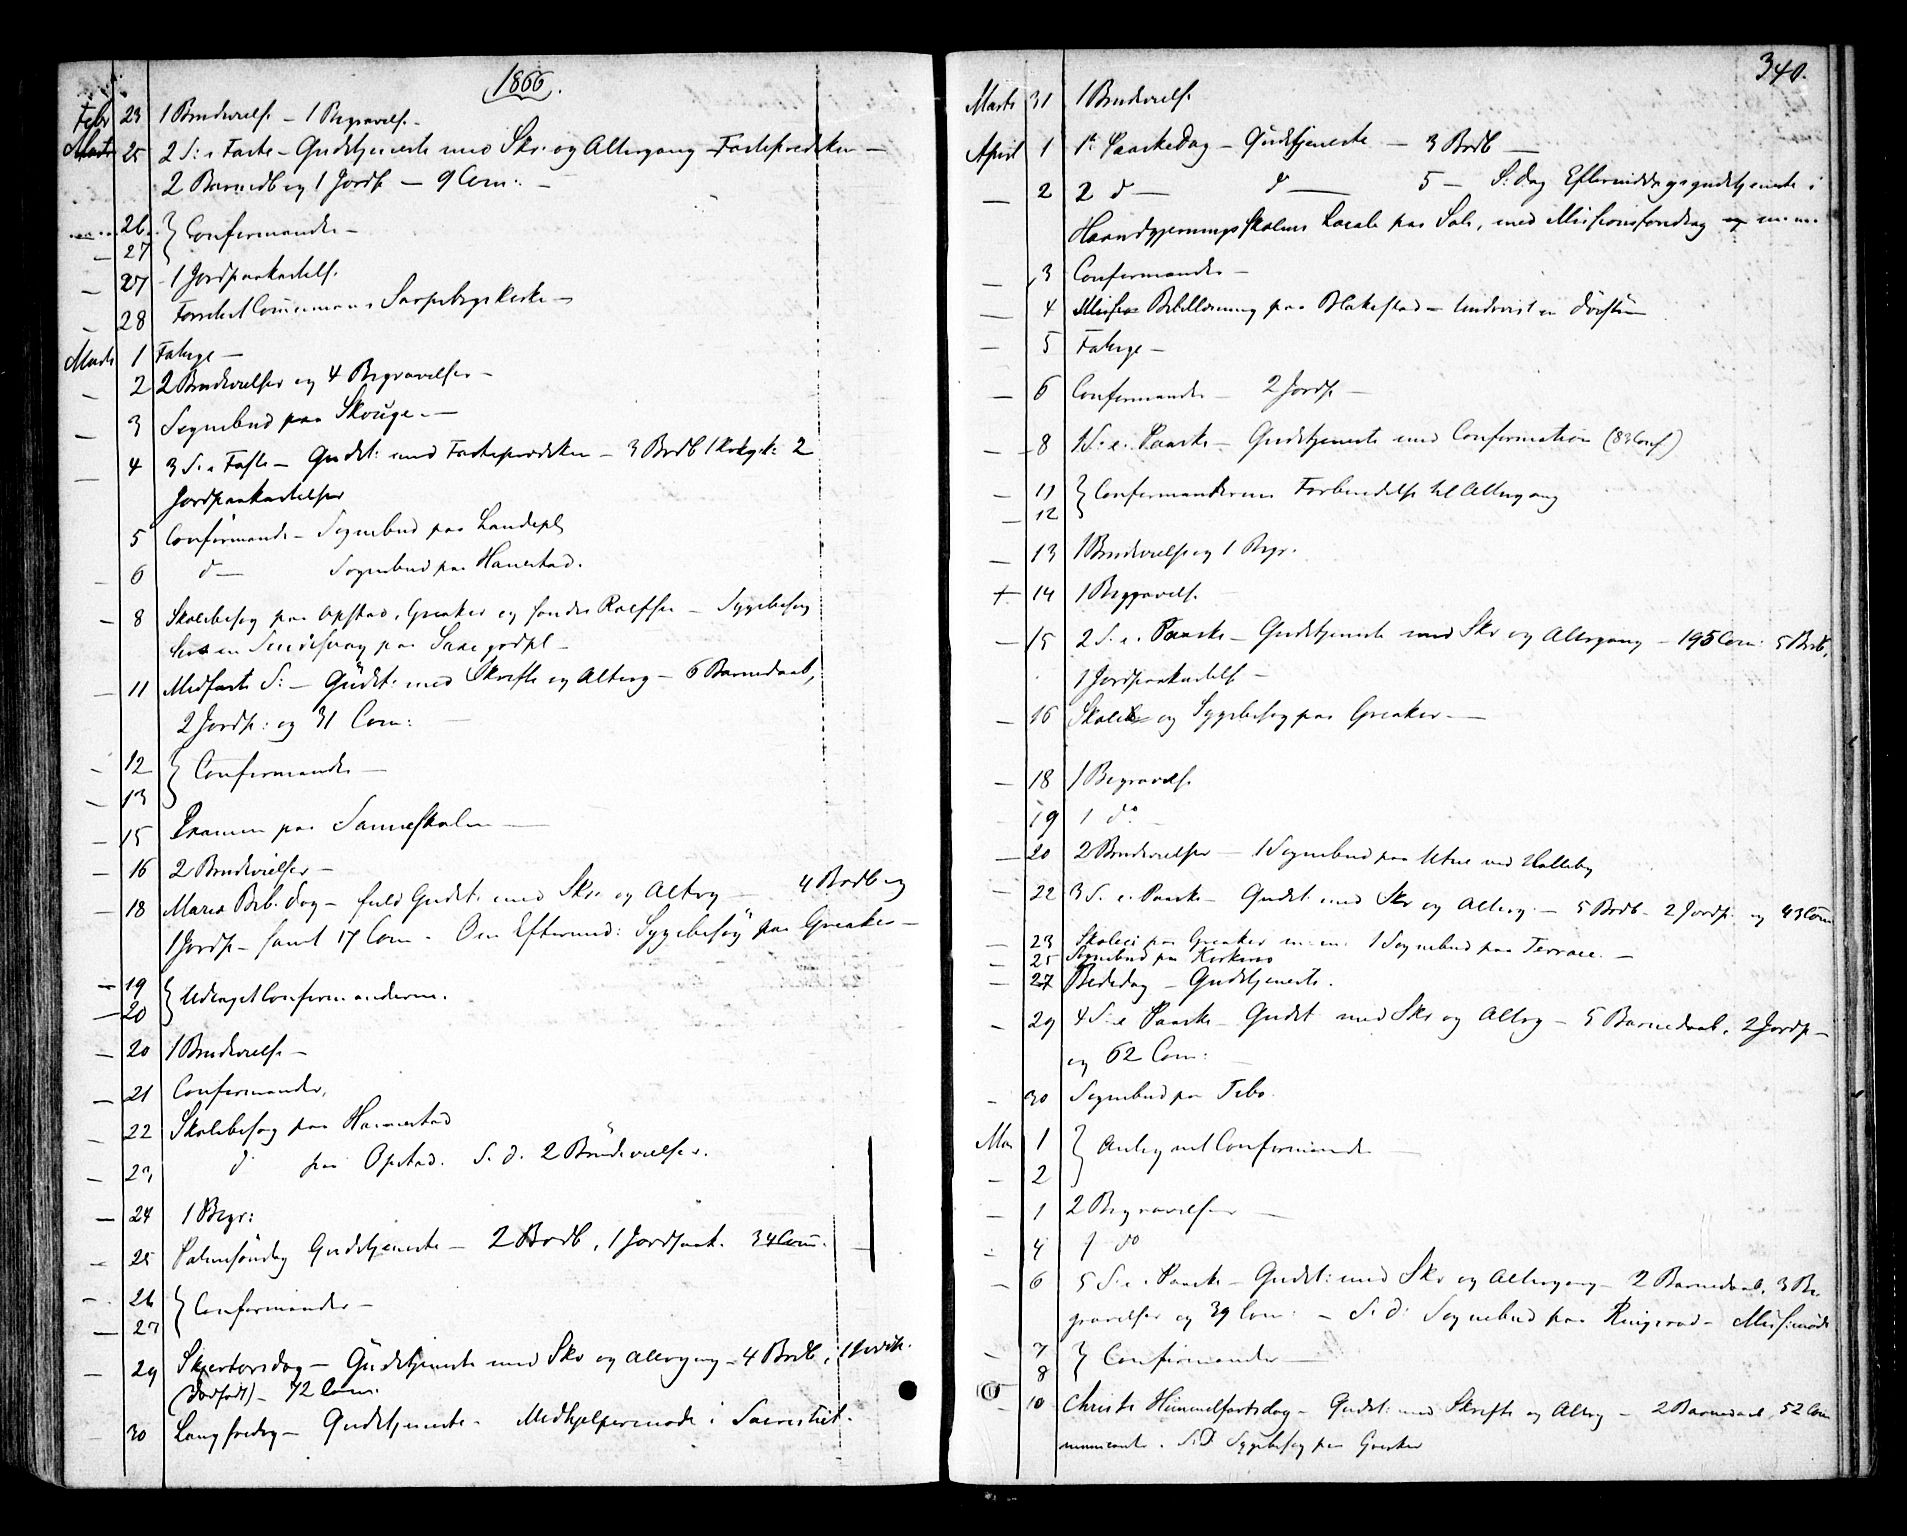 1866.
Febr 23 1 Brudevielse – 1 Begravelse –
25 2 S: i Faste – Gudstjeneste med Skr. og Altergang – Fasteprædiken –
2 Barnedb og 1 Jordp – 9 Com: –
26 } Confirmander –
27
– 27 1 Jordpaakastelse
– 28 Forrettet Sarpsborgs Kirke –
Marts 1 Fattige –
– 2 2 Brudevielser og 4 Begravelser –
– 3 Sognebud paa Skouge. –
– 4 3 S. i Faste – Gudst: med Fasteprædiken – 3 Brdb 1 2
Jordpaakastelser
5 Confirmand. – Sognebud paa Landepl
– 6 do – Sognebud paa Hanestad.
– 8 Skolebesøg paa Opstad, Greaker og søndre Rolfsø – Sygebesøg
hos en paa
– 11 Midfaste S: – Gudst: med Skrifte og Alterg – 6 Barnedaab,
2 Jordp: og 31 Com: –
– 12 } Confirmander –
– 13
– 15 Examen paa Sanneskolen –
– 16 2 Brudevielser –
– 18 Mariæ Beb. Dag – fuld Gudst. med Skr. og Alterg – 4 Brdb og
1 Jordp – samt 17 Com – Om Eftermid: Sygebesøg paa Greaker –
– 19 } Udtaget Confirmanderne.
– 20
– 20 1 Brudevielse –
– 21 Confirmander,
– 22 Skolebesøg paa Hannestad
– 23 do paa Opstad. S. d. 2 Brudevielser.
– 24 1 Begr:
– 25 Palmesöndag Gudstjeneste – 2 Brdb, 1 Jordpaak. 34 Com. –
– 26 } Confirmander –
– 27
– 29 Skjertorsdag – Gudstjeneste med Skr og Altergang – 4 Brdb,
(dødfødt) – 72 Com:
– 30 Langfredag – Gudstjeneste – Medhjelpermøde i Sacristiet.
340.
Marts 31 1 Brudevielse
April 1 1ste Paaskedag – Gudstjeneste – 3 Brdb –
– 2 2 d – d – 5 – S: dag Eftermiddagsgudstjeneste i
Haandgjerningsskolens Locale paa Sole, med Missionsforedrag m. m.
– 3 Confirmander –
– 4 Bibellæsning paa Blakestad –
– 5 Fattige –
– 6 Confirmander – 2 Jordp –
– 8 1 S: e. Paaske – Gudstjeneste med Confirmation (83 Conf)
– 11 } Confirmandernes Forberedelse til Altergang
– 12
– 13 1 Brudevielse og 1 Begr.
+ 14 1 Begravelse
– 15 2 S. e. Paaske – Gudstjeneste med Skr og Altergang – 195 Com: 5 Brdb,
1 Jordpaakastelse –
– 16 Skole og Sygebesøg paa Greaker –
– 18 1 Begravelse
19 1 do
– 20 2 Brudevielser – 1 Sognebud paa Utne ved Halleby
– 22 3 S. e. Paaske – Gudst. med Skr og Alterg. – 5 Brdb – 2 Jordp. og 43 Com
– 23 paa Greaker m. m. 1 Sognebud paa Terrace. –
– 25 Sognebud paa
– 27 Bededag – Gudstjeneste.
– 29 4 S. e Paaske – Gudst med Skr og Alterg – 5 Barnedaab, 2 Jordp –
og 62 Com:
– 30 Sognebud paa Tebo.
Mai 1 } Antegnet Confirmander –
2
– 1 2 Begravelser –
– 4 1 do
– 6 5 S. e. Paaske – Gudst: med Skr og Altergang – 2 Barnedaab, 3 Be-
gravelser og 39 Com: – S. d: Sognebud paa Ringerød –
– 7 } Confirmander –
8
– 10 Christi Himmelfartsdag – Gudst: med Skrifte og Alterg – 2 Barnedaab, 52 Com
municanter. S. D Sygebesøg paa Greaker